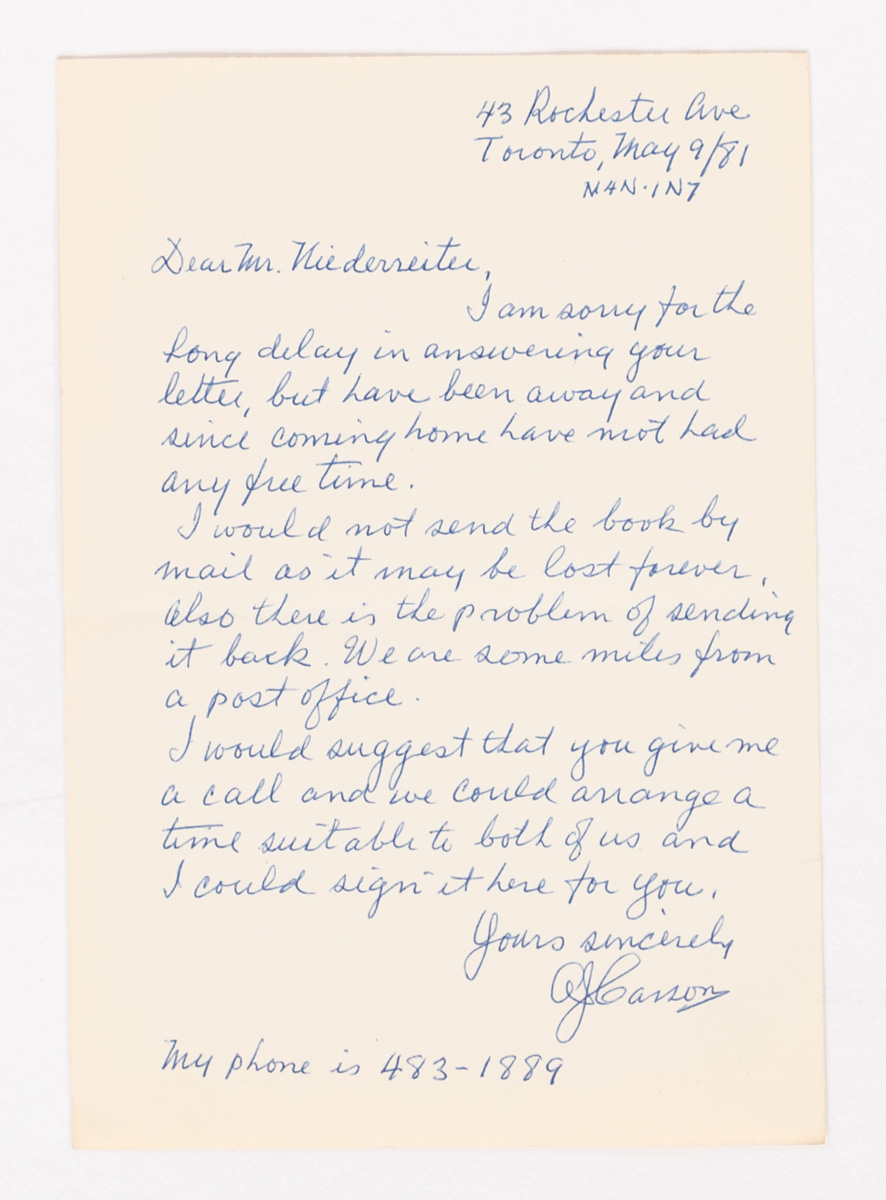 43 Rochester Ave
Toronto, May 9/81
M4N·1N7
Dear Mr. Niederreiter,
I am sorry for the
long delay in answering your
letter, but have been away and
since coming home have not had
any free time.
I would not send the book by
mail as it may be lost forever,
also there is the problem of sending
it back. We are some miles from
a post office.
I would suggest that you give me
a call and we could arrange a
time suitable to both of us and
I could sign it here for you.
Yours sincerely
AJCasson
My phone is 483-1889